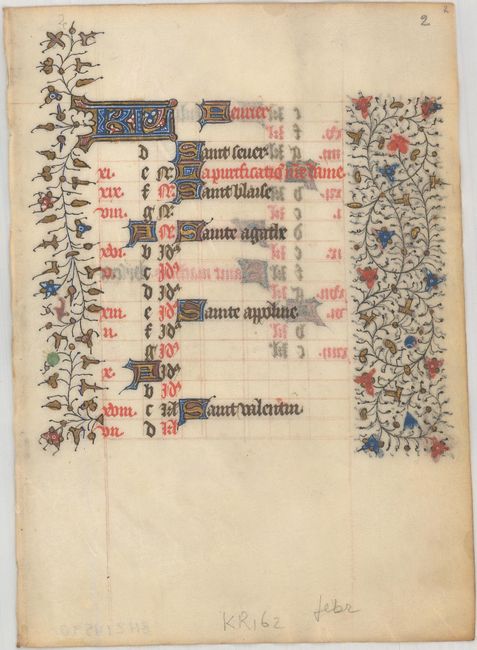 2
KL feurier
d Saint seuer
xi. e N La purificatiõ nr̃e dame
xix. f N Saint blaise
viii. g N
A N Sainte agathe
xvi. b Id
v. c Id
d Id
xiii. e Id Sainte appoline
ii. f Id
g Id
x. A Id
b Id
xviii. c kl Saint valentin
vii. d kl
KR162 febr